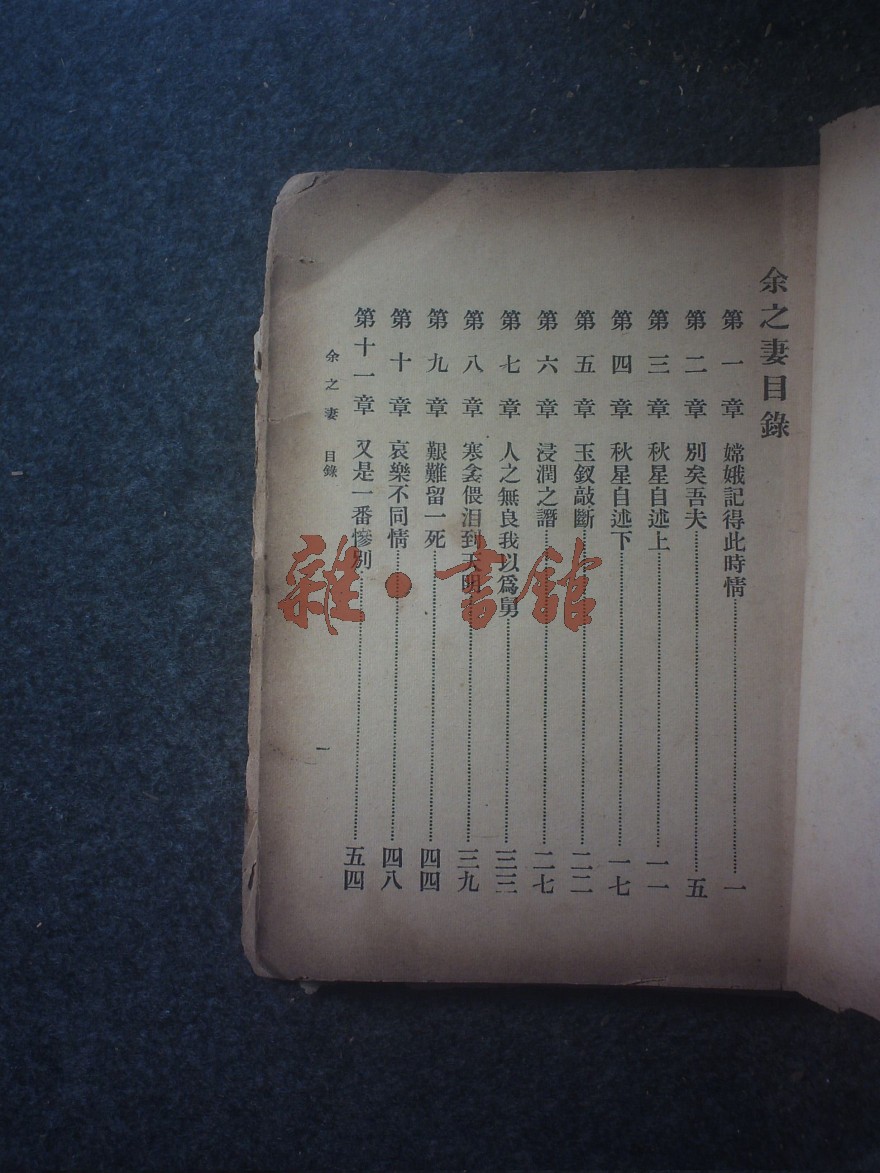 余之妻目錄
第一章 嫦娥記得此時情……一
第二章 別矣吾夫……五
第三章 秋星自述上……一一
第四章 秋星自述下……一七
第五章 玉釵敲斷……二二
第六章 浸潤之譖……二七
第七章 人之無良我以爲舅……三三
第八章 寒衾偎泪到天明……三九
第九章 艱難留一死……四四
第十章 哀樂不同情……四八
第十一章 又是一番慘別……五四
余之妻 目錄
一
雜·書館